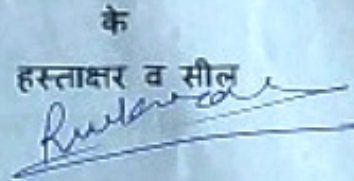 के
हस्ताक्षर व सील